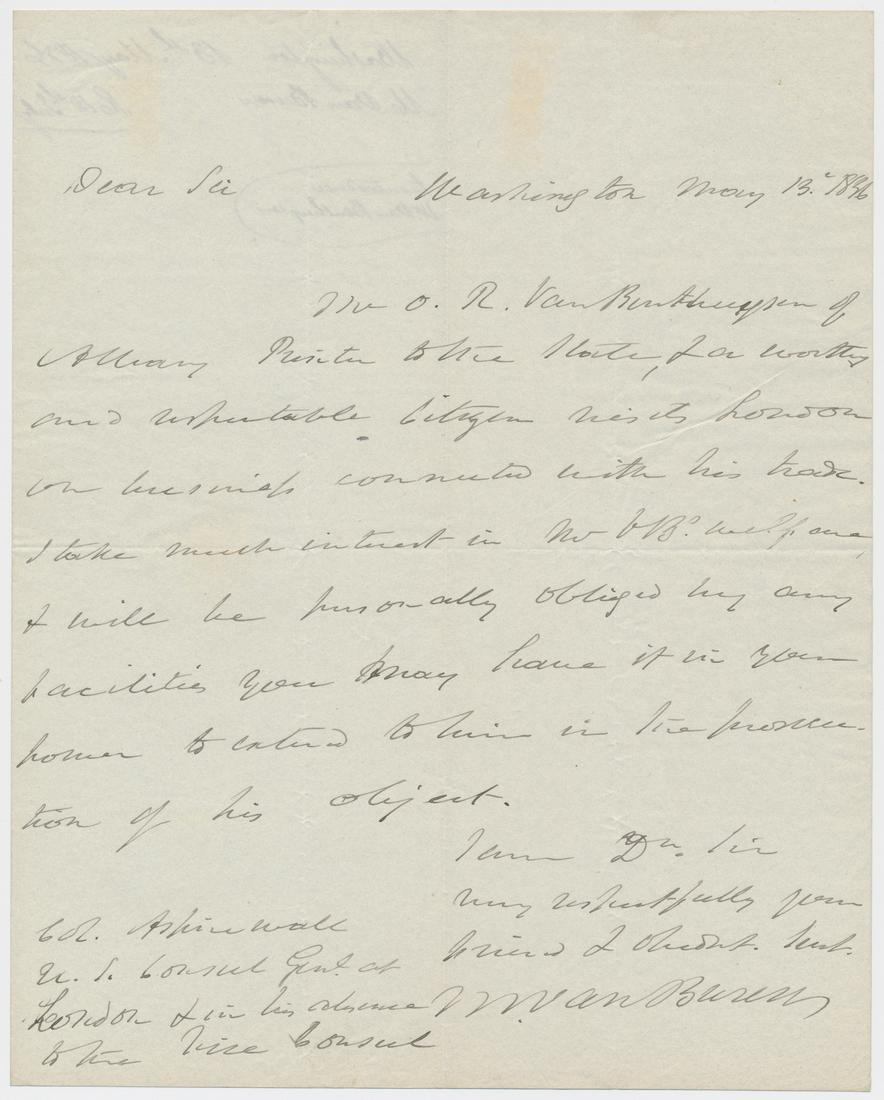 Dear Sir Washington May 13. 1836
Mr O. R. Van Benthuysen of
Albany Printer to the State, & a worthy
and respectable Citizen visits London
on business connected with his trade.
I take much interest in Mr V B's. welfare,
& will be personally obliged by any
facilities you may have it in your
power to extend to him in the prosecu-
tion of his object.
I am Dr. Sir
very respectfully your
friend & Obedt. Servt.
M Van Buren
Col. Aspinwall
U. S. Consul Genl. at
London & in his absence
to the Vice Consul